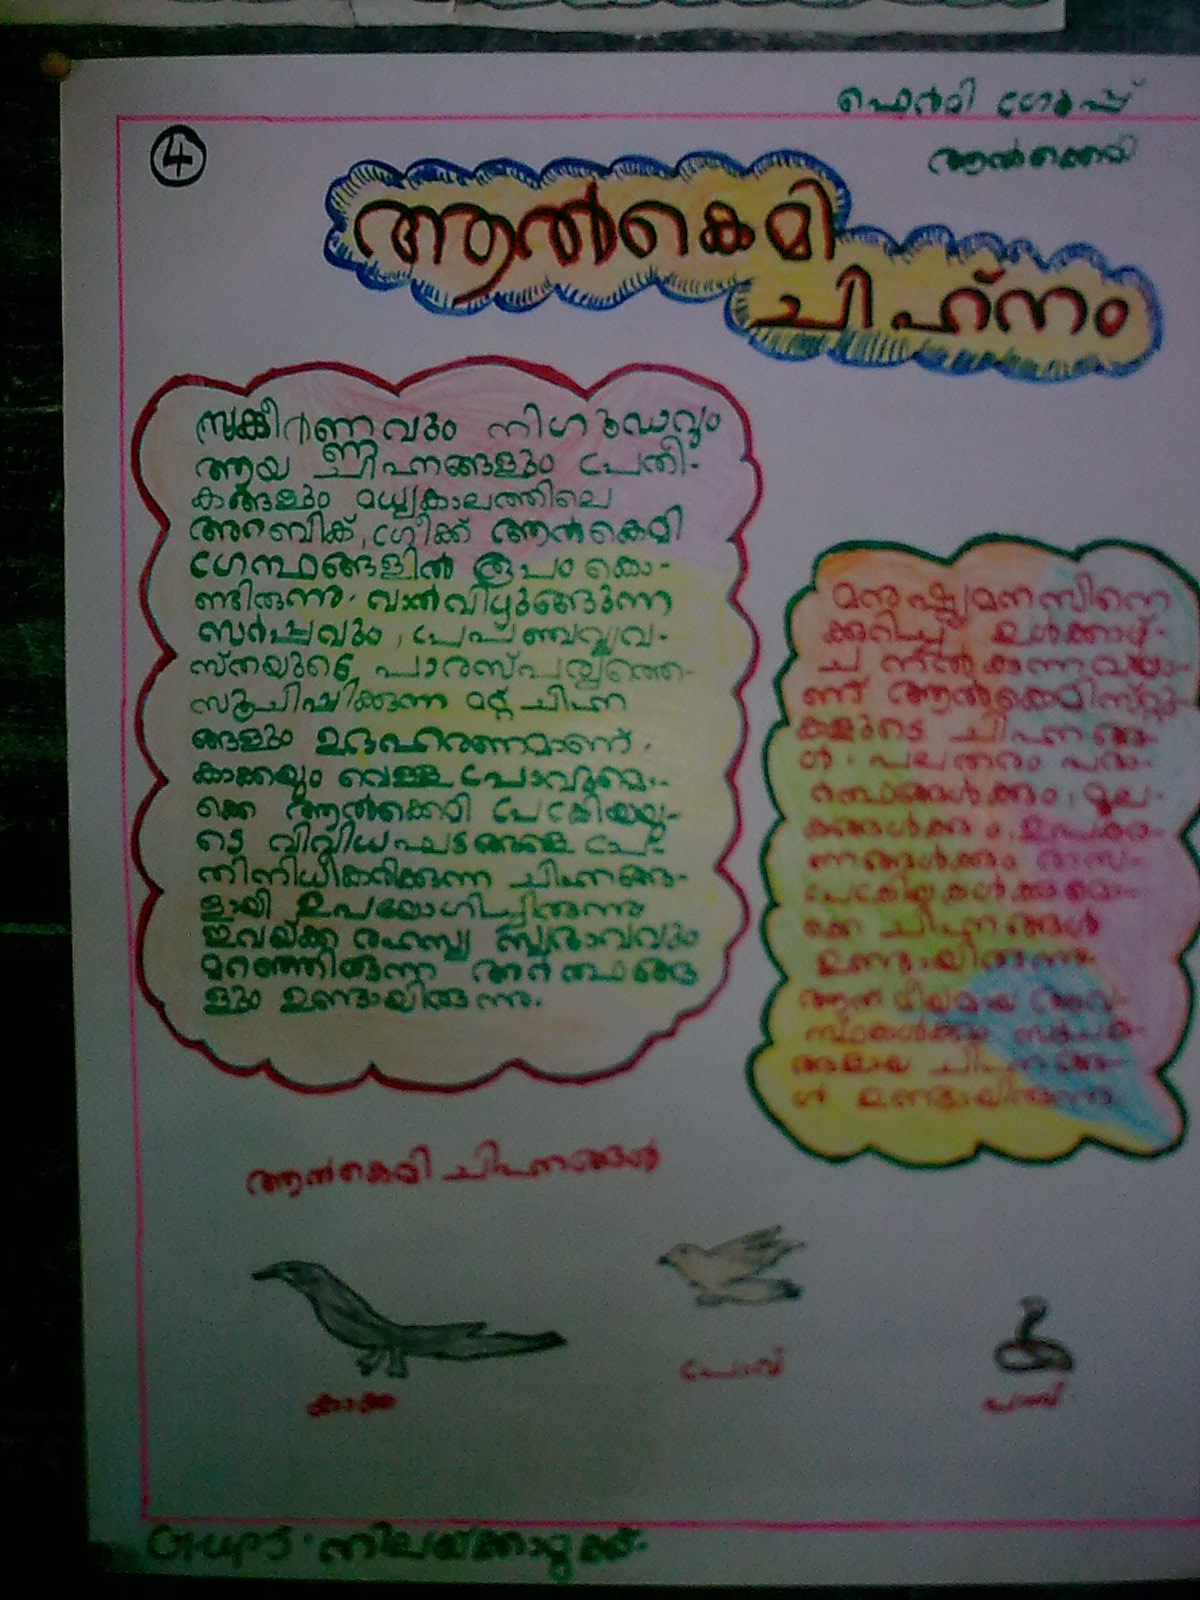 ഫെർമി ഗ്രൂപ്പ്
ആൽക്കെമി
4
ആൽകെമി
ചിഹ്നം
സങ്കീർണ്ണവും നിഗൂഡവും
ആയ ചിഹ്നങ്ങളും പ്രതീ-
കങ്ങളും മധ്യകാലത്തിലെ
അറബിക്, ഗ്രീക്ക് ആൽകെമി
ഗ്രന്ഥങ്ങളിൽ രൂപം കൊ-
ണ്ടിരുന്നു. വാൽവിഴുങ്ങുന്ന
സർപ്പവും, പ്രപഞ്ചവ്യവ-
സ്ഥയുടെ പാരസ്പര്യത്തെ-
സൂചിപ്പിക്കുന്ന മറ്റ് ചിഹ്ന
ങ്ങളും ഉദാഹരണമാണ്.
കാക്കയും വെള്ള പ്രാവുമൊ-
ക്കെ ആൽക്കെമി പ്രക്രിയയു-
ടെ വിവിധ ഘടങ്ങളെ പ്ര-
തിനിധീകരിക്കുന്ന ചിഹ്നങ്ങ-
ളായി ഉപയോഗിച്ചിരുന്നു
ഇവയ്ക്ക രഹസ്യ സ്വഭാവവും
മറഞ്ഞിരുന്ന അർത്ഥങ്ങ
ളും ഉണ്ടായിരുന്നു.
മനുഷ്യമനസിനെ
ക്കുറിച്ച് ഉൾക്കാഴ്-
ച നൽകുന്നവയാ-
ണ് ആൽക്കെമിസ്റ്റു-
കളുടെ ചിഹ്നങ്ങ-
ൾ. പലതരം പദാ-
ർത്ഥങ്ങൾക്കും, മൂല-
കങ്ങൾക്കും, ഉപകര-
ണങ്ങൾക്കും രാസ-
പ്രക്രിയകൾക്കുമൊ-
ക്കെ ചിഹ്നങ്ങൾ
ഉണ്ടായിരുന്നു.
ആത്മീയമായ അവ-
സ്ഥകൾക്കും
ചിഹ്നങ്ങ-
ൾ ഉണ്ടായിരുന്നു.
ആൽകെമി ചിഹ്നങ്ങൾ
കാക്ക
പ്രാവ്
പാമ്പ്
GHUPS